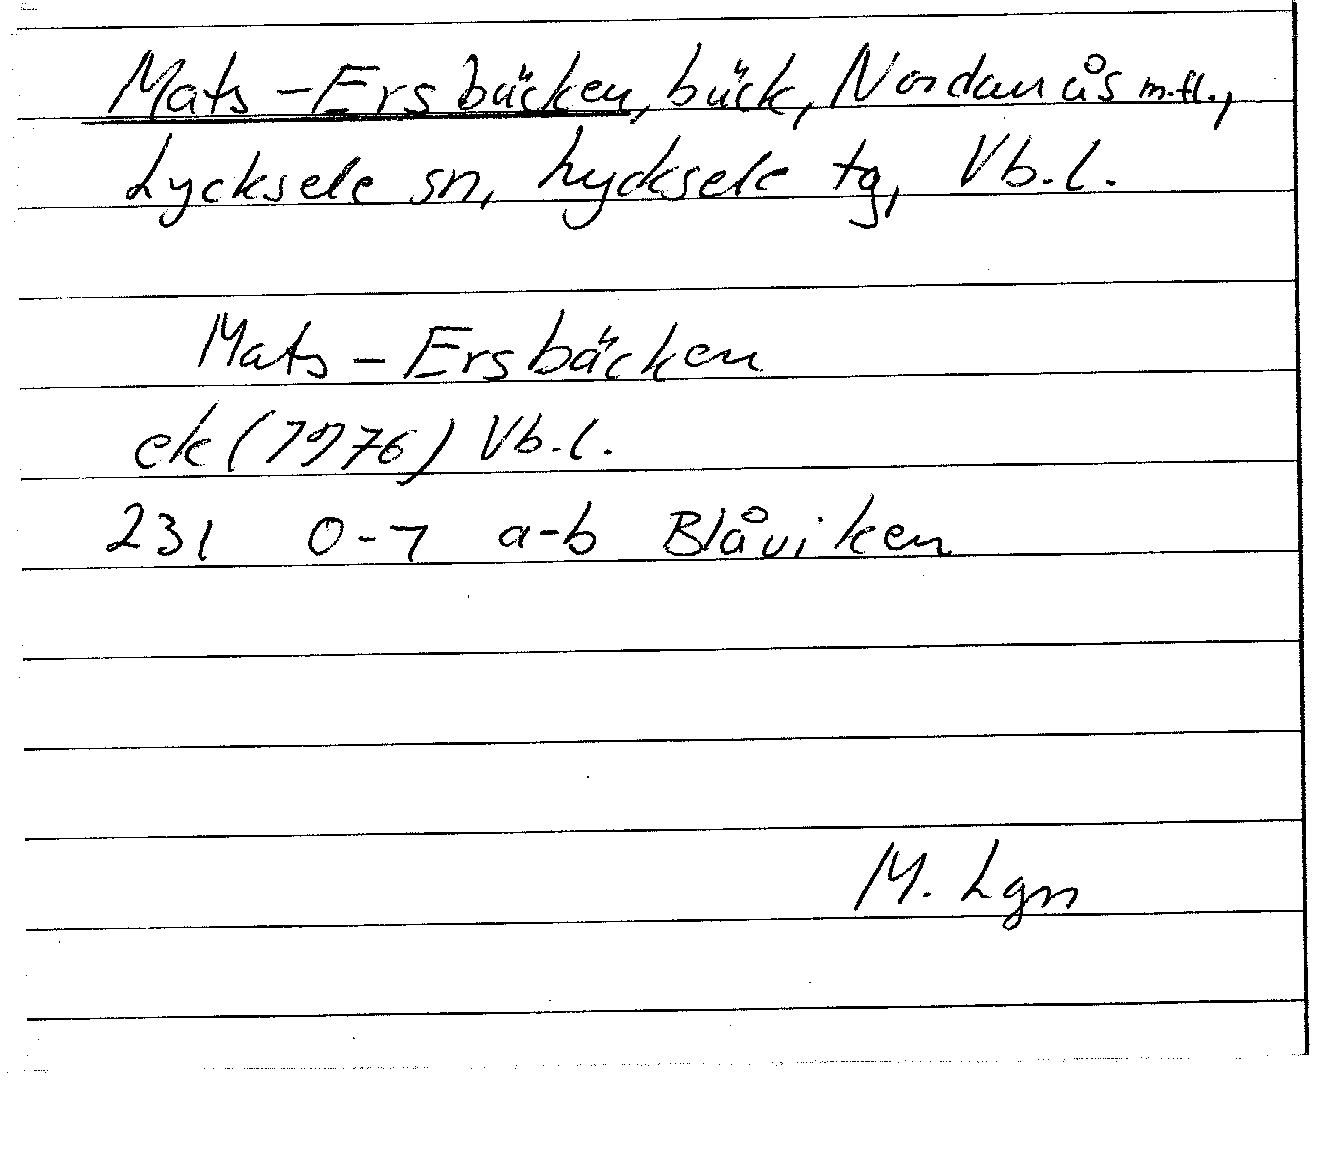 Mats-Ersbäcken, bäck, Nordanås m.fl.,
Lycksele sn, Lycksele tg, Vb.l.
Mats-Ersbäcken
ek (1976) Vb.l.
231 0-1 a-b Blåviken
M. Lgn